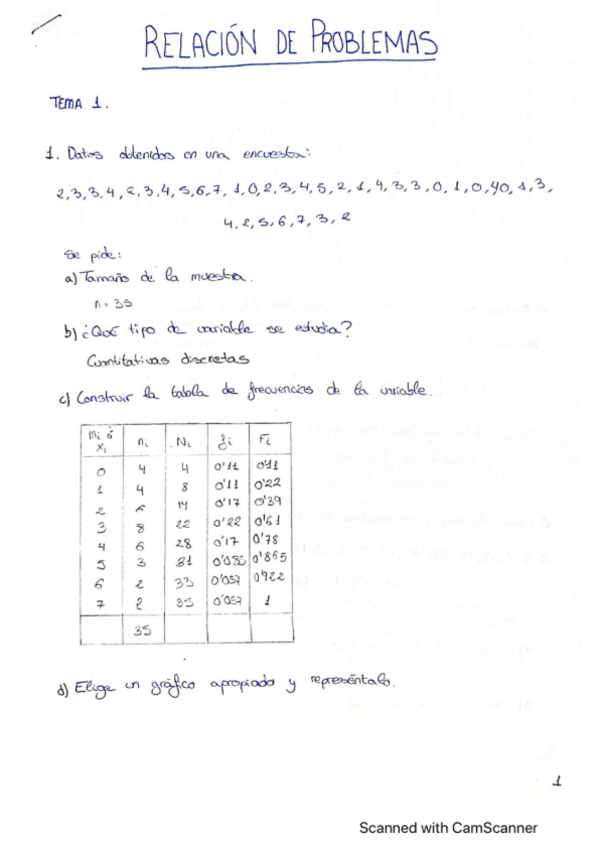 RELACIÓN DE PROBLEMAS
TEMA 1.
1. Datos obtenidos en una encuesta:
2,3,3,4,2,3,4,5,6,7,1,0,2,3,4,5,2,1,4,3,3,0,1,0,40,1,3,
4,2,5,6,7,3,2
Se pide:
a) Tamaño de la muestra.
n = 35
b) ¿Qué tipo de variable se estudia?
Cuantitativas discretas
c) Construir la tabla de frecuencias de la variable.
Mi ó Xi ni Ni fi Fi
0 4 4 0'11 0'11
1 4 8 0'11 0'22
2 6 14 0'17 0'39
3 8 22 0'22 0'61
4 6 28 0'17 0'78
5 3 31 0'085 0'865
6 2 33 0'057 0'922
7 2 35 0'057 1
35
d) Elige un gráfico apropiado y represéntalo.
1
Scanned with CamScanner